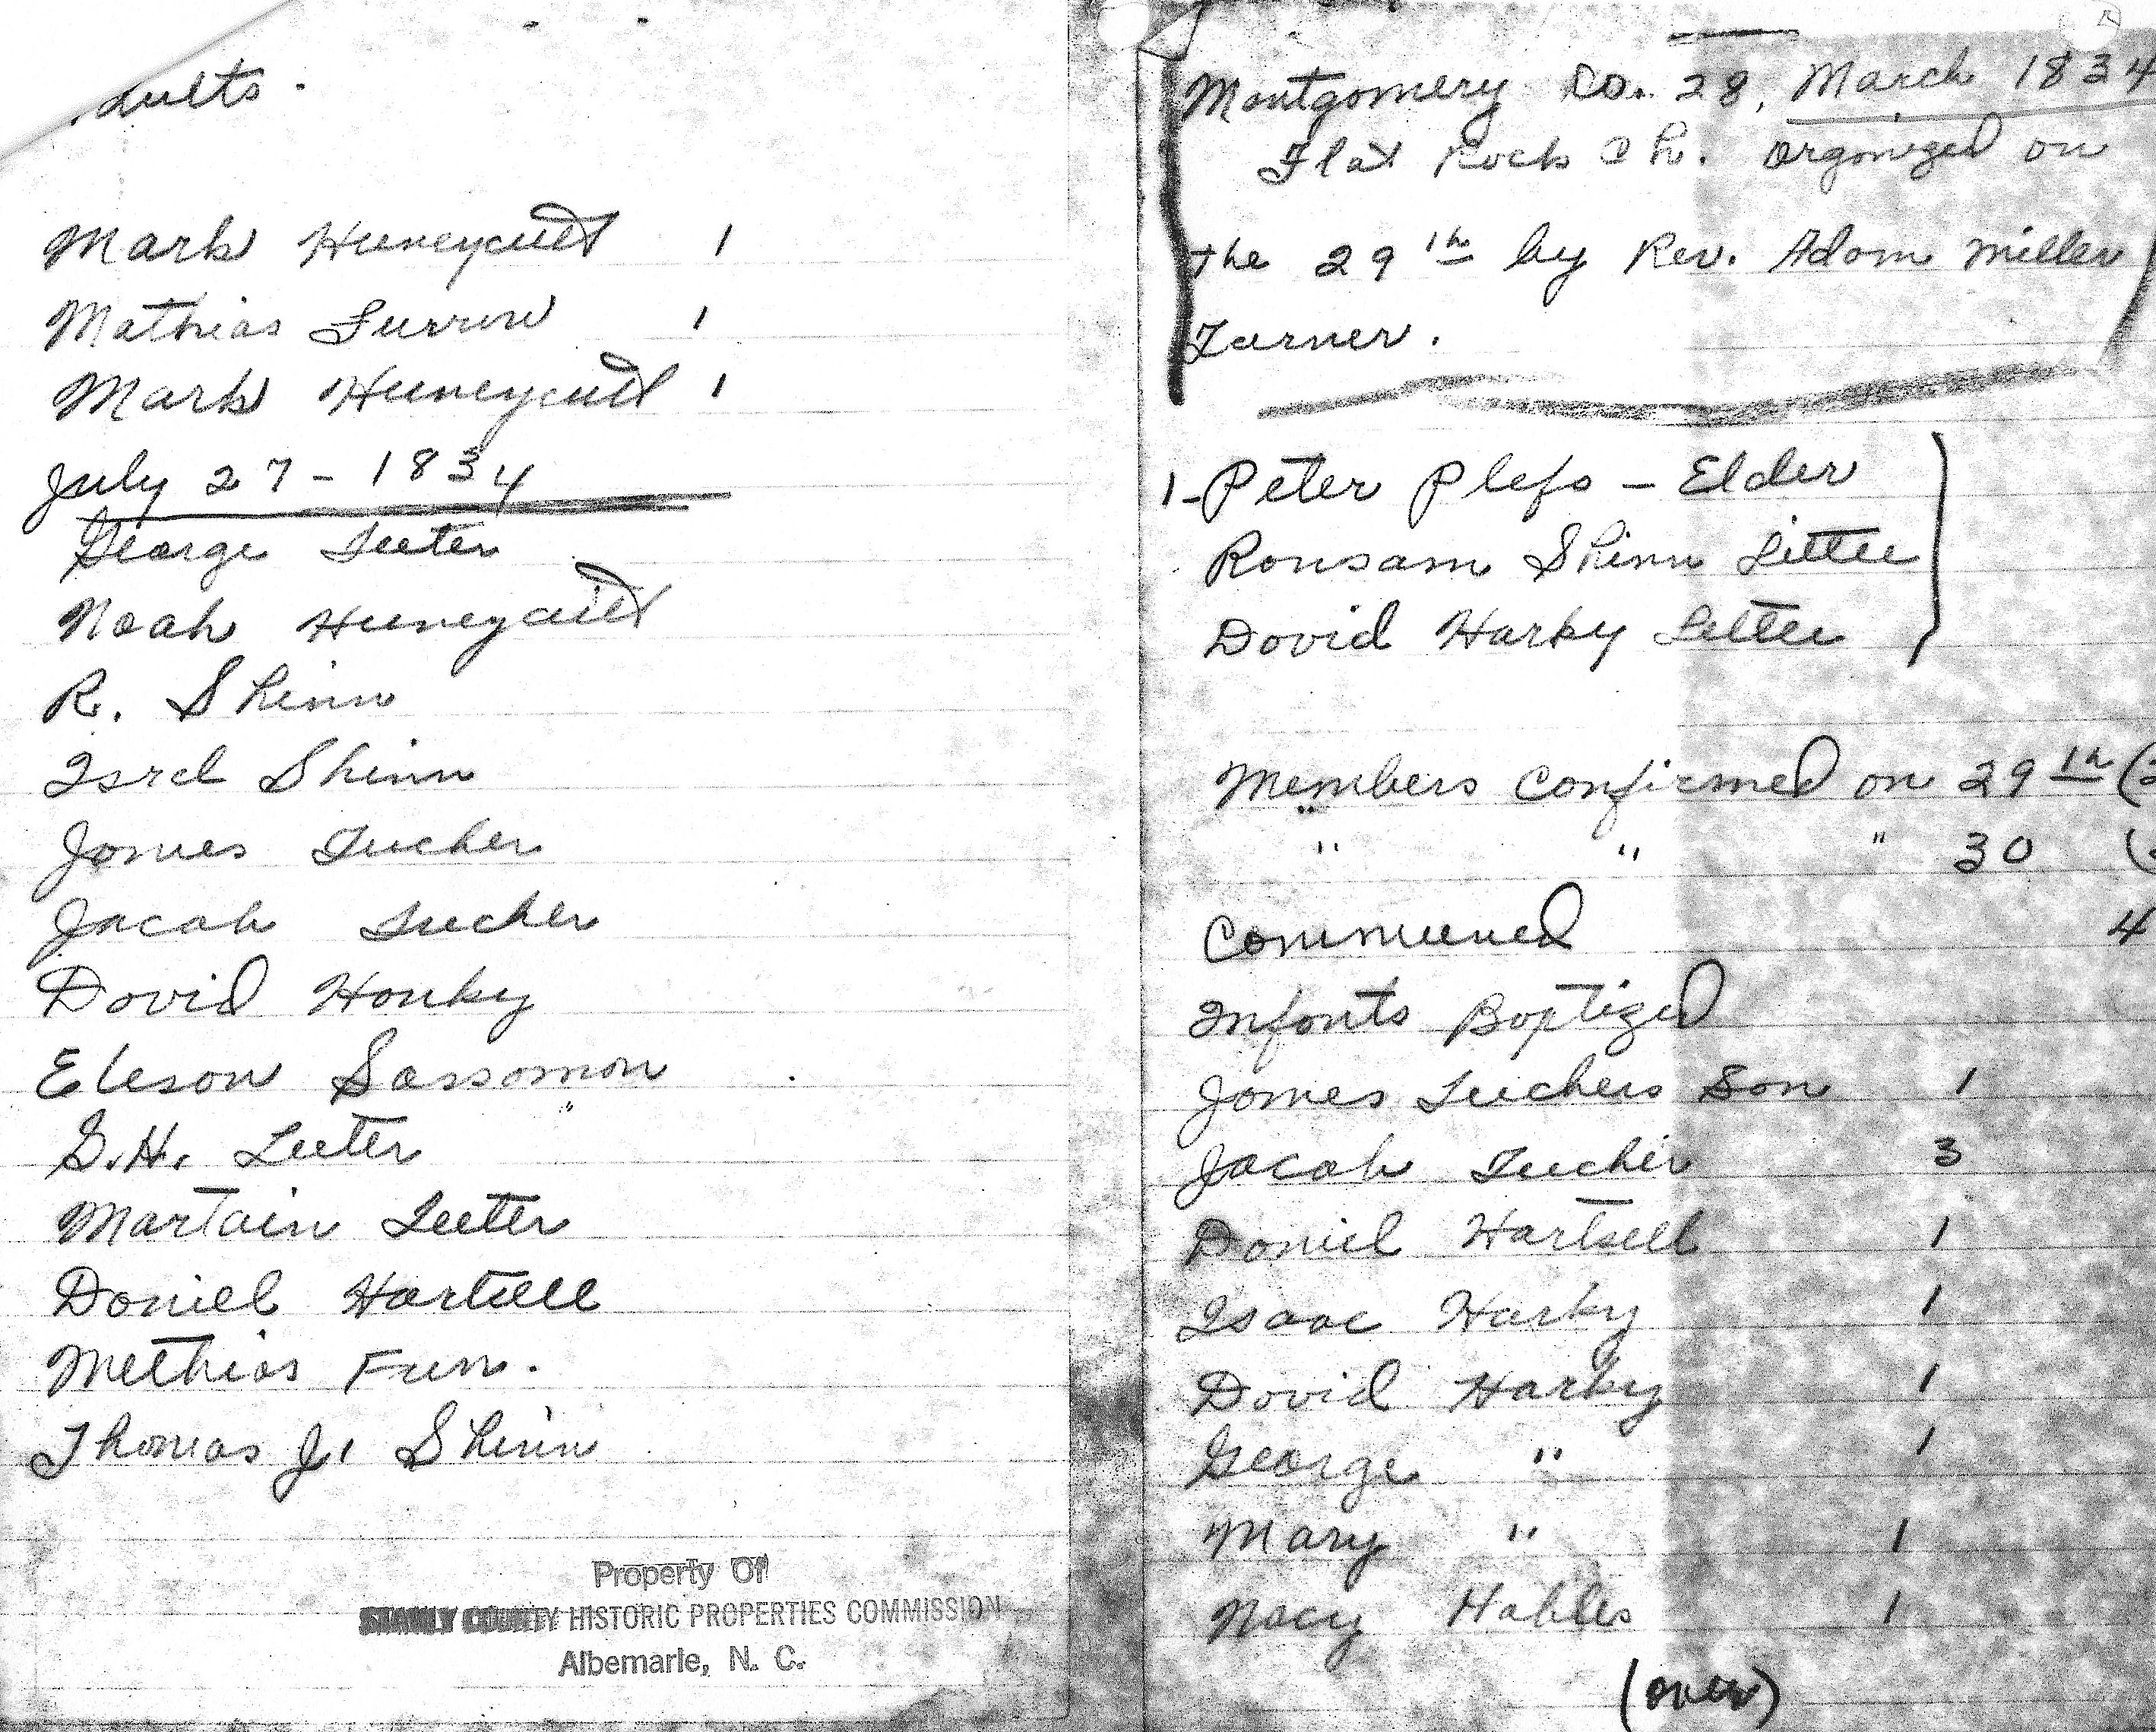 dults.
Mark Huneycutt 1
Mathias Furrow 1
Mark Huneycutt 1
July 27 - 1834
George Teeter
Noah Huneycutt
R. Shinn
Isrel Shinn
James Tucker
Jacob Tucker
David Honky
Eleson Sassomon
G.H. Teeter
Martain Teeter
Daniel Hartsell
Methias Furr.
Thomas J. Shinn
Property Of
STANLY COUNTY HISTORIC PROPERTIES COMMISSION
Albemarle, N. C.
Montgomery Co. 28, March 1834
Flat Rock Ch. Organized on
the 29th by Rev. Adam Miller
Turner.
1-Peter Plefs - Elder
Ronsam Shinn Letter
David Harky Letter
Members Confirmed on 29th (
" " " 30 (
Communed 4
Infants Baptized
James Tuckers Son 1
Jacob Tucker 3
Daniel Hartsell 1
Isaac Harky 1
David Harky 1
George " 1
Mary " 1
Nacy Hables 1
(over)